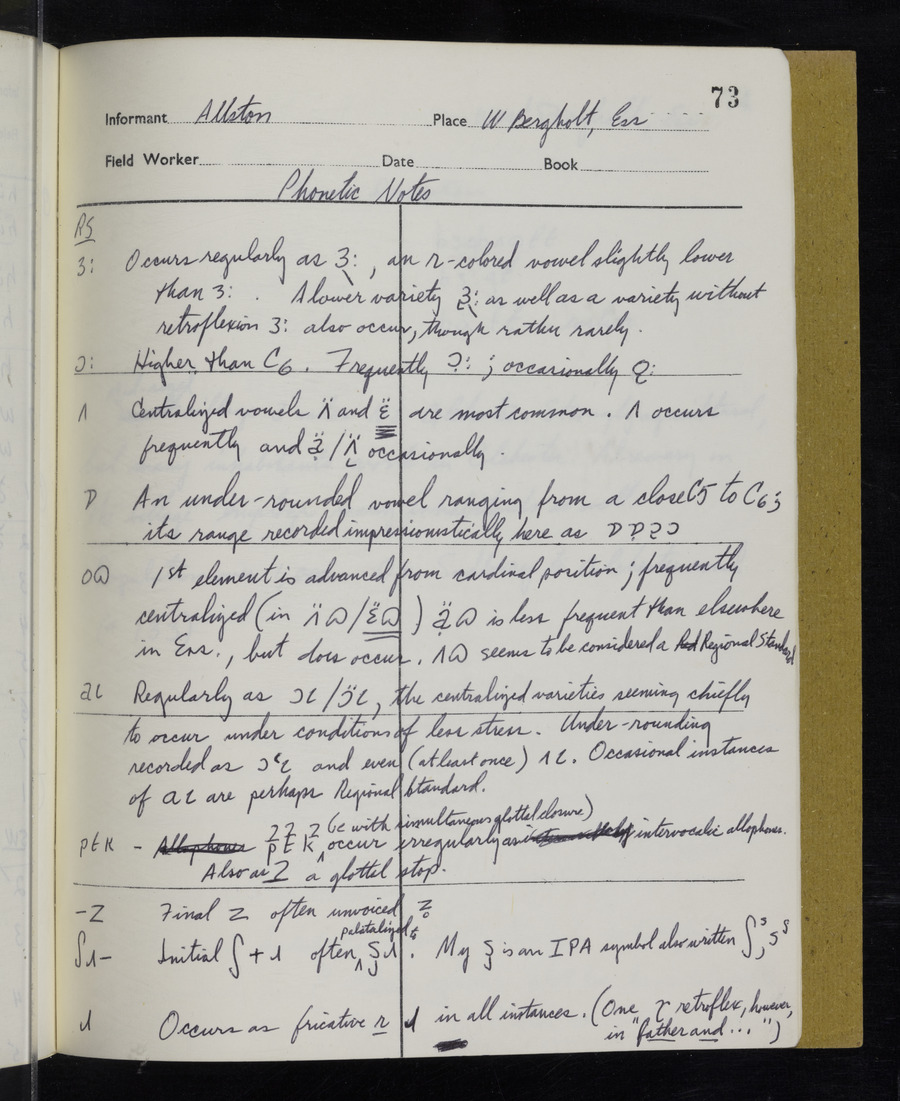 73
Informant Allston Place W Bergholt, Ess
Field Worker Date Book
Phonetic Notes
RS
ɜ: Occurs regularly as ɜ˞:, an r-colored vowel slightly lower
than ɜ: . A lower variety ɜ˞: as well as a variety without
retroflexion ɜ: also occur, though rather rarely.
ɔ: Higher than C6. Frequently ɔ̣: ; occasionally
ʌ Centralized vowels ʌ̈ and ɛ̈ are most common. ʌ occurs
frequently and / occasionally.
ɒ An under-rounded vowel ranging from a close C5 to C6;
its range recorded impressionistically here as ɒ ɒ̣ ɔ
oɷ 1st element is advanced from cardinal position; frequently
centralized (in ʌ̈ɷ/ɛ̈ɷ) ɷ is less frequent than elsewhere
in Ess., but does occur. ʌɷ seems to be considered a Regional Standard
aɩ Regularly as ɔɩ/ɔ̈ɩ, the centralized varieties seeming chiefly
to occur under conditions of less stress. Under-rounding
recorded as ɔ˓ɩ and even (at least once) ʌɩ. Occasional instances
of aɩ are perhaps Regional Standard.
ptk - Allophones p t k (ie with simultaneous glottal closure) occur irregularly as intervocalic allophones.
Also as ʔ a glottal stop.
-z Final z often unvoiced z̥
ʃɹ- Initial ʃ + ɹ often palatalized . My is an IPA symbol also written
ɹ Occurs as fricative r ɹ in all instances. (One , retroflex, however,
in "father and ...")